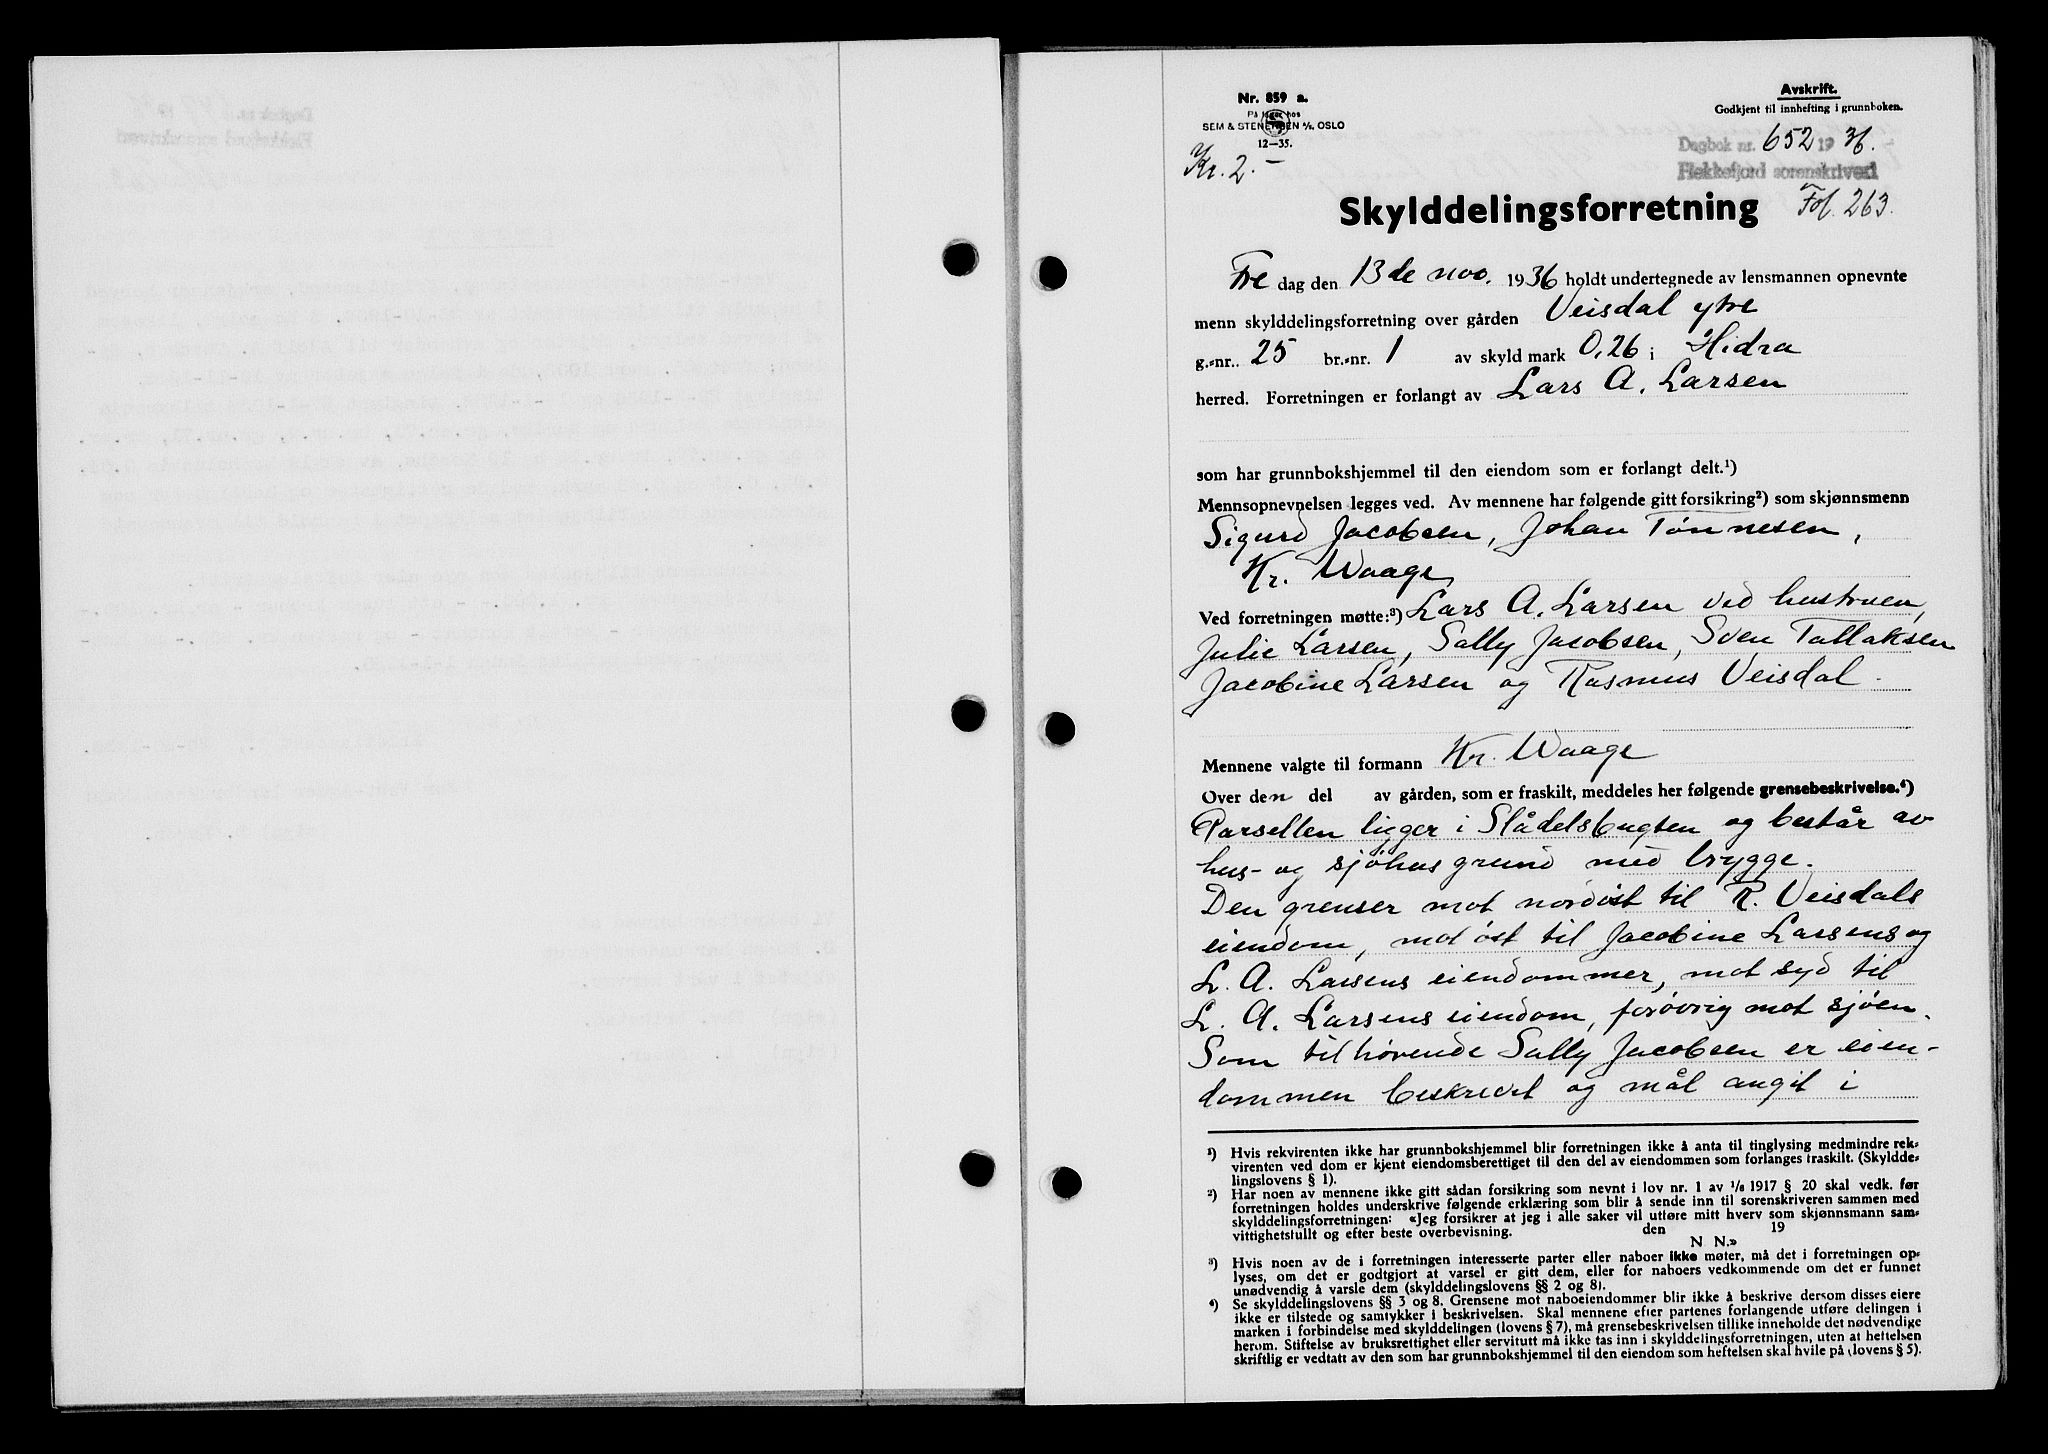 Nr. 859 a.
På lager hos
SEM & STENERSEN A/S, OSLO
12—35.
Kr. 2.-
Avskrift.
Godkjent til innhefting i grunnboken.
Dagbok nr. 652 1936.
Flekkefjord sorenskriveri
Fol. 263.
Skylddelingsforretning
Fre dag den 13de nov. 1936 holdt undertegnede av lensmannen opnevnte
menn skylddelingsforretning over gården Veisdal ytre
g.-nr.. 25 br.-nr. 1 av skyld mark 0,26 i Hidra
herred. Forretningen er forlangt av Lars A. Larsen
som har grunnbokshjemmel til den eiendom som er forlangt delt.¹)
Mennsopnevnelsen legges ved. Av mennene har følgende gitt forsikring²) som skjønnsmenn
Sigurd Jacobsen, Johan Tønnesen,
Kr. Waage
Ved forretningen møtte:³) Lars A. Larsen ved hustruen,
Julie Larsen, Sally Jacobsen, Sven Tallaksen
Jacobine Larsen og Rasmus Veisdal.
Mennene valgte til formann Kr. Waage
Over den del av gården, som er fraskilt, meddeles her følgende grensebeskrivelse.⁴)
Parsellen ligger i Slådelsbugten og består av
hus- og sjøhusgrund med brygge.
Den grenser mot nordøst til R. Veisdals
eiendom, mot øst til Jacobine Larsens og
L. A. Larsens eiendommer, mot syd til
L. A. Larsens eiendom, forøvrig mot sjøen.
Som tilhørende Sally Jacobsen er eien-
dommen beskrevet og mål angit i
¹) Hvis rekvirenten ikke har grunnbokshjemmel blir forretningen ikke å anta til tinglysing medmindre rek-
virenten ved dom er kjent eiendomsberettiget til den del av eiendommen som forlanges fraskilt. (Skyldde-
lingslovens § 1).
²) Har noen av mennene ikke gitt sådan forsikring som nevnt i lov nr. 1 av 1/6 1917 § 20 skal vedk. før
forretningen holdes underskrive følgende erklæring som blir å sende inn til sorenskriveren sammen med
skylddelingsforretningen: «Jeg forsikrer at jeg i alle saker vil utføre mitt hverv som skjønnsmann sam-
vittighetsfullt og efter beste overbevisning. den 19
N N.»
³) Hvis noen av de i forretningen interesserte parter eller naboer ikke møter, må det i forretningen op-
lyses, om det er godtgjort at varsel er gitt dem, eller for naboers vedkommende om det er funnet
unødvendig å varsle dem (skylddelingslovens §§ 2 og 8).
⁴) Se skylddelingslovens §§ 3 og 8. Grensene mot naboeiendommer blir ikke å beskrive dersom disses eiere
ikke er tilstede og samtykker i beskrivelsen. Skal mennene efter partenes forlangende utføre delingen i
marken i forbindelse med skylddelingen (lovens § 7), må grensebeskrivelsen tillike inneholde det nødvendige
herom. Stiftelse av bruksrettighet eller servitutt må ikke tas inn i skylddelingsforretningen, uten at heftelsen
skriftlig er vedtatt av den som har grunnbokshjemmel til den eiendom som heftelsen skal hvile på (lovens § 5).